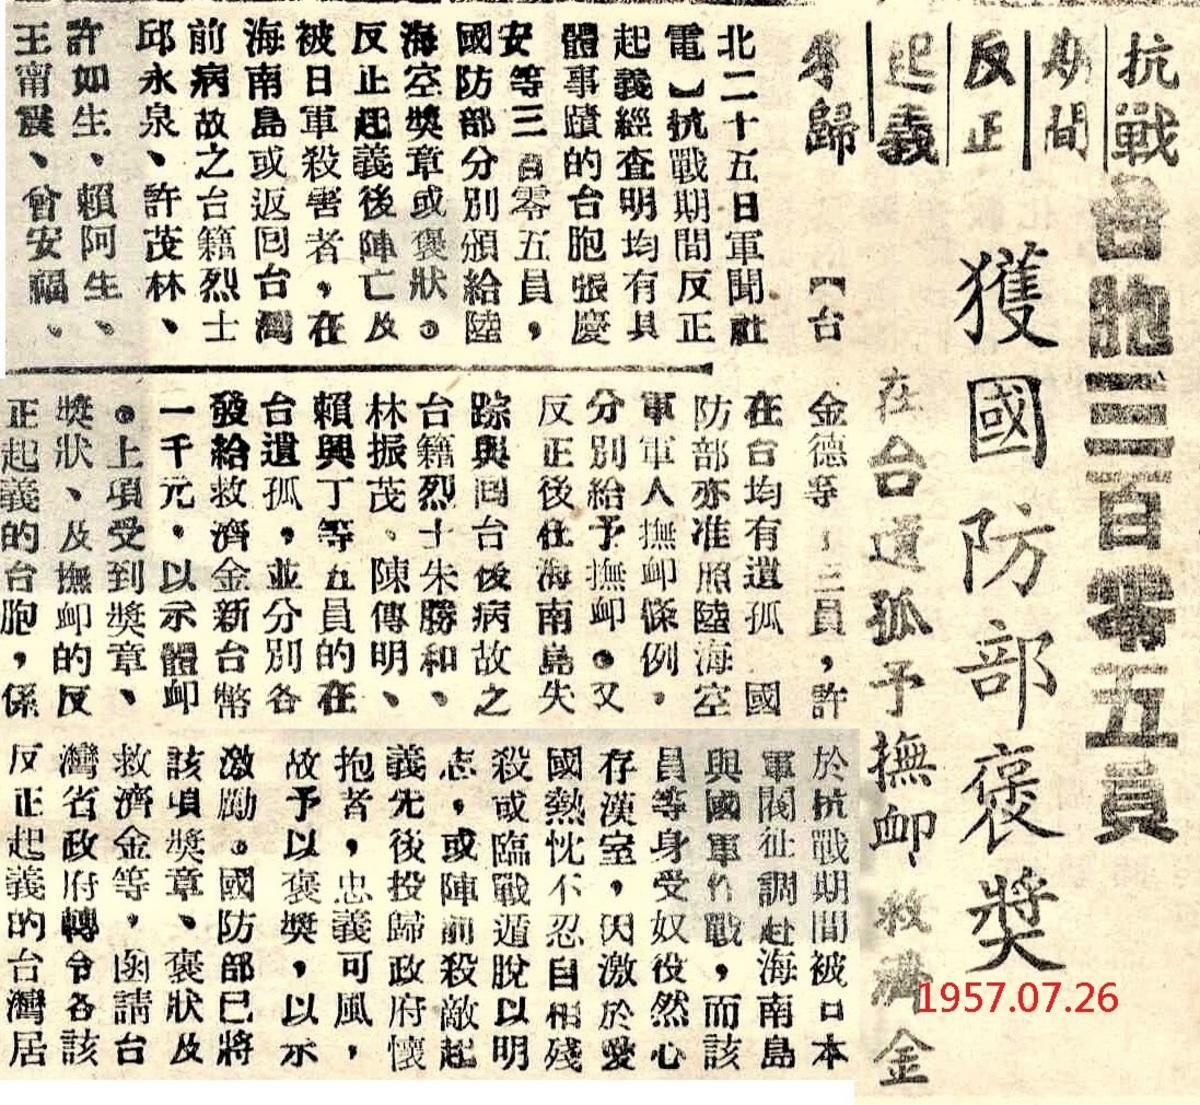 抗戰
期間
反正
起義
來歸
台胞三百零五員
獲國防部褒奬
在台遺孤予撫卹、救濟金
【台
北二十五日軍聞社
電】抗戰期間反正
起義經查明均有具
體事蹟的台胞張慶
安等三百零五員，
國防部分別頒給陸
海空獎章或褒狀。
反正起義後陣亡及
被日軍殺害者，在
海南島或返回台灣
前病故之台籍烈士
邱永泉、許茂林、
許如生、賴阿生、
王甯震、曾安福、
金德等 三員，許
在台均有遺孤 國
防部亦准照陸海空
軍軍人撫卹條例，
分別給予撫卹。又
反正後在海南島失
踪與回台後病故之
台籍烈士朱勝和、
林振茂、陳傳明、
賴興丁等五員的在
台遺孤，並分別各
發給救濟金新台幣
一千元，以示體卹
。上項受到獎章、
獎狀、及撫卹的反
正起義的台胞，係
於抗戰期間被日本
軍閥征調赴海南島
與國軍作戰，而該
員等身受奴役然心
存漢室，因激於愛
國熱忱不忍自相殘
殺或臨戰遁脫以明
志，或陣前殺敵起
義先後投歸政府懷
抱者，忠義可風，
故予以褒獎，以示
激勵。國防部已將
該項獎章、褒狀及
救濟金等，函請台
灣省政府轉令各該
反正起義的台灣居
1957.07.26